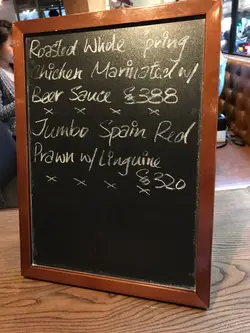 Roasted Whole pring
Chicken Marinated w/
Beer Sauce $388
x x x x
Jumbo Spain Red
Prawn w/ Linguine
x x x $320
x